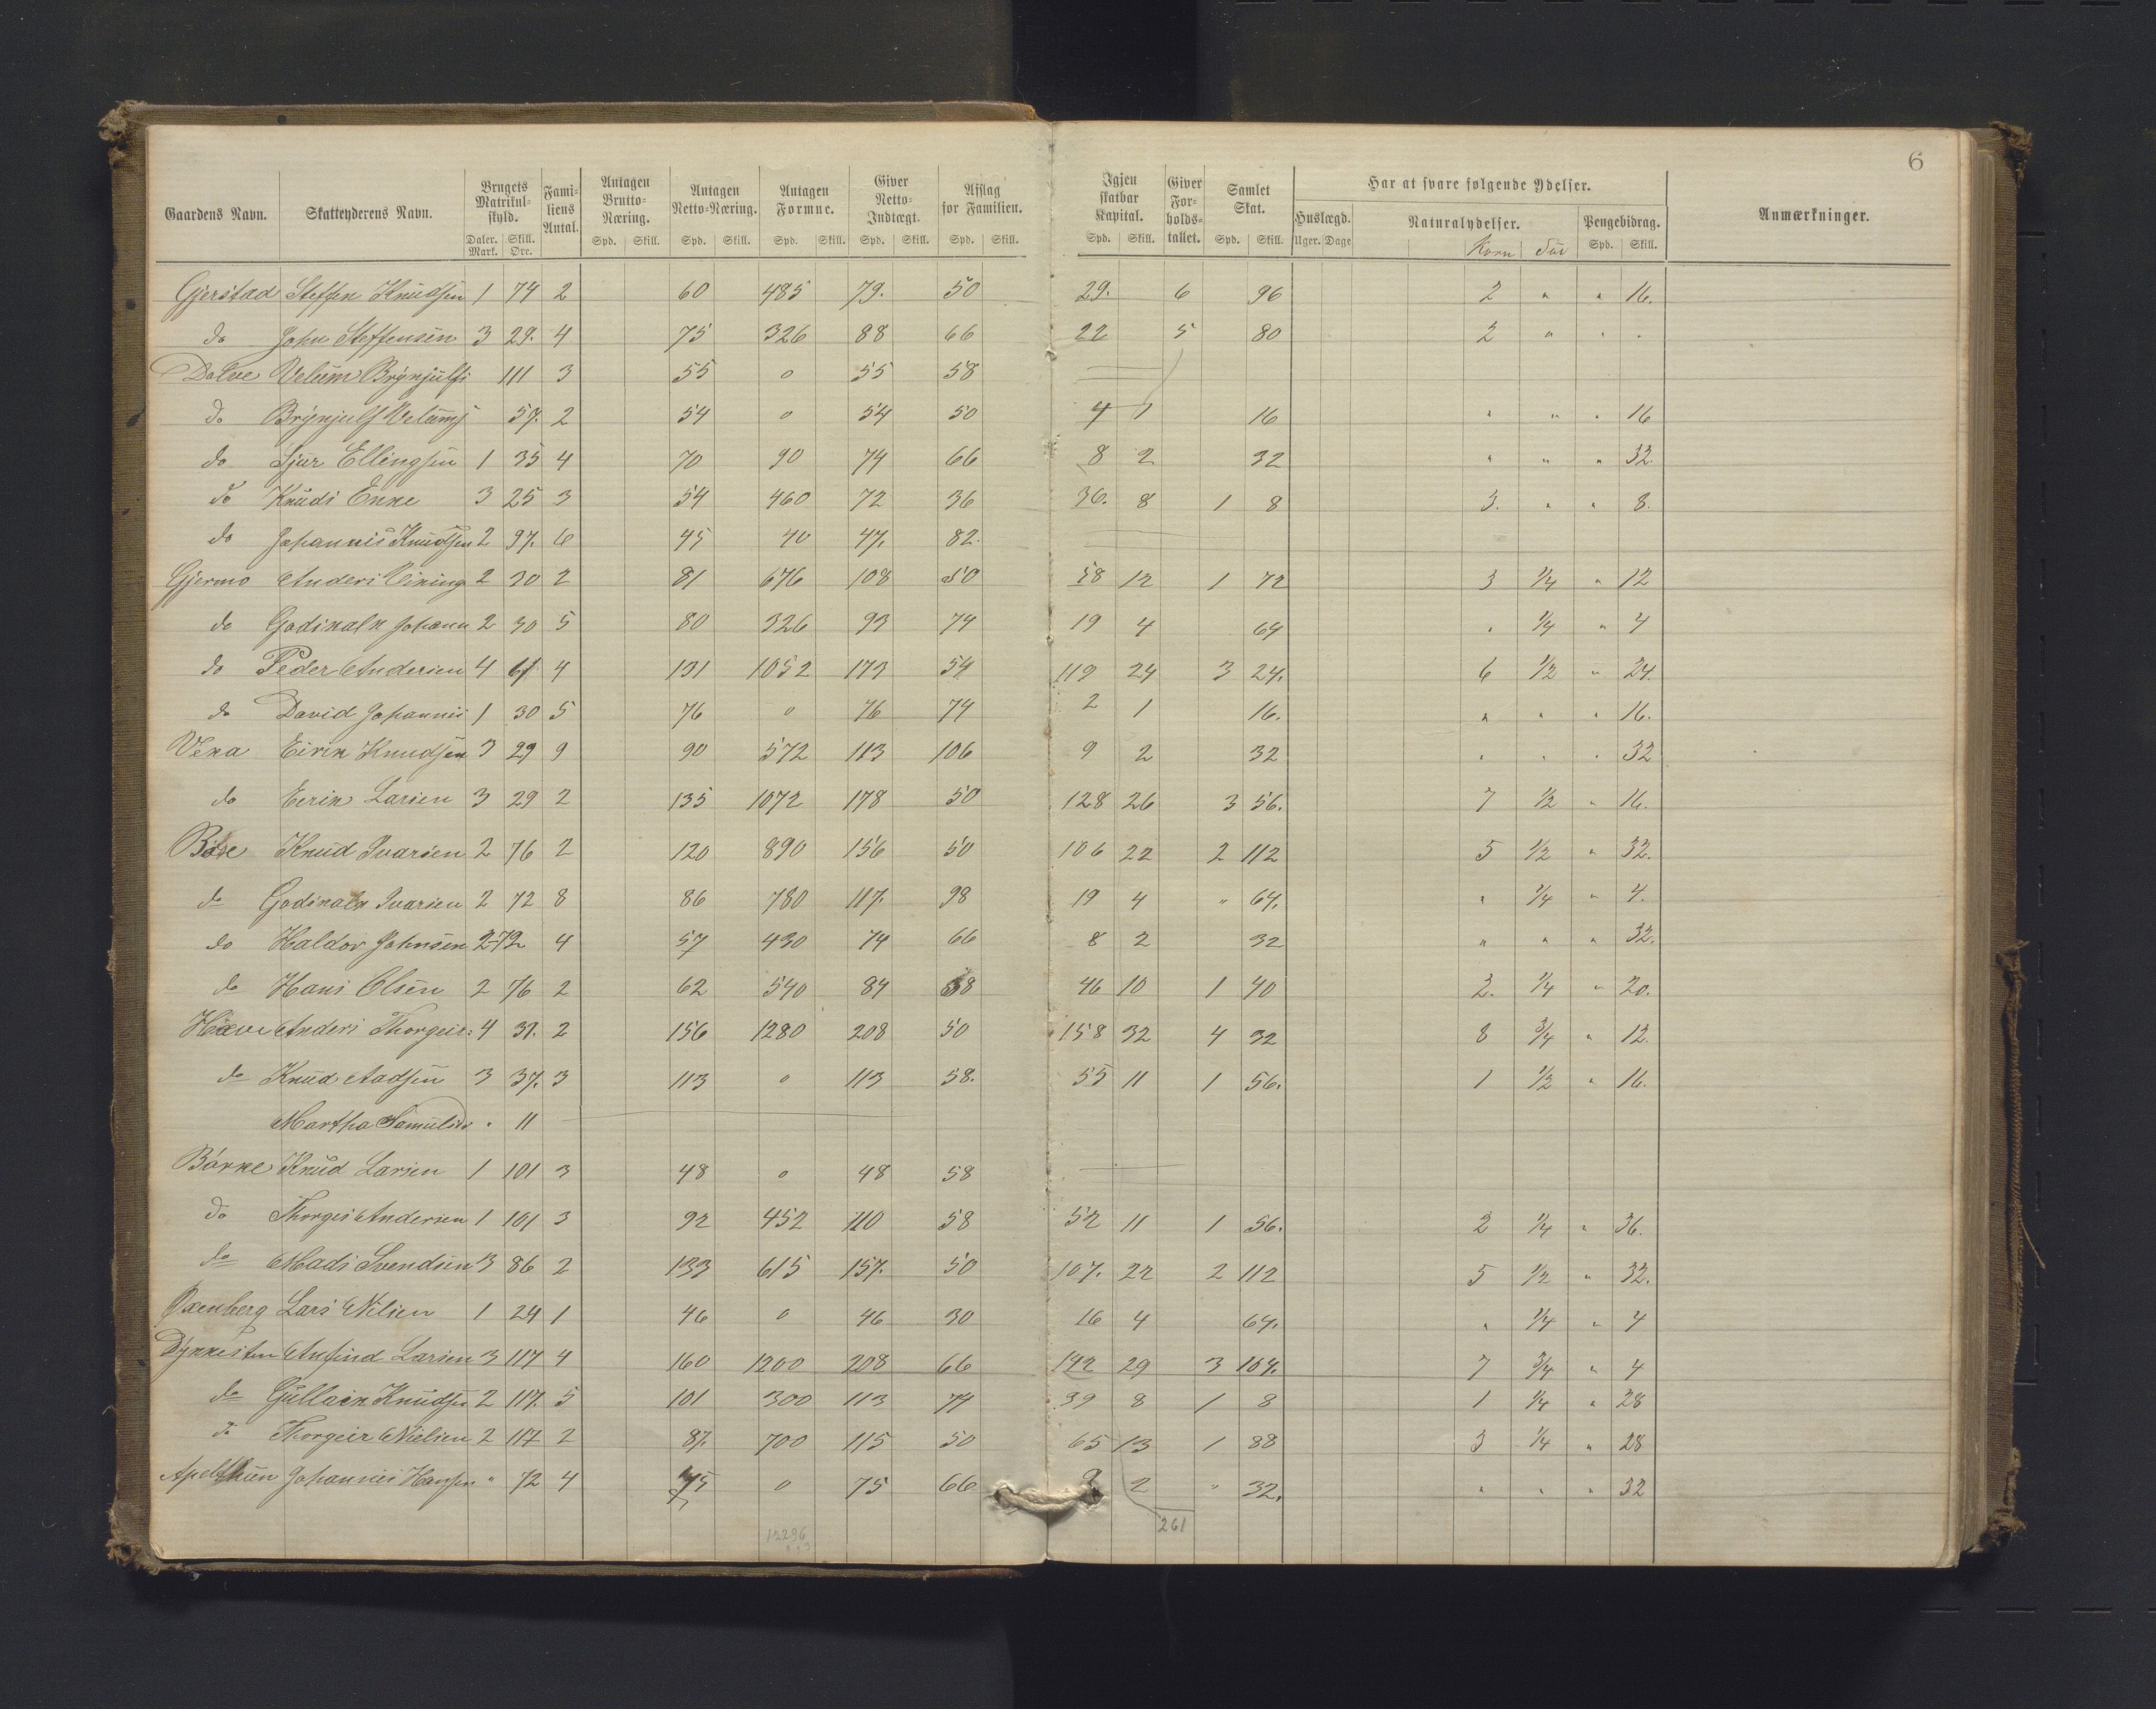 6
Gaardens Navn. Skatteyderens Navn. Brugets Matrikul-skyld. Daler. Mark. Skill. Øre. Familiens Antal. Antagen Brutto-Næring. Spd. Skill. Antagen Netto-Næring. Spd. Skill. Antagen Formue. Spd. Skill. Giver Netto-Indtægt. Spd. Skill. Afslag for Familien. Spd. Skill. Igjen skatbar Kapital. Spd. Skill. Giver For-holds-tallet. Samlet Skat. Spd. Skill. Har at svare følgende Ydelser. Huslægd. Uger. Dage Naturalydelser. Korn Pengebidrag. Spd. Skill. Anmærkninger.
Gjerstad Steffen Knudsen 1 74 2 60 485 79. 50 29. 6 96 2 " " 16.
do John Steffensen 3 29. 4 75 326 88 66 22 5 80 2 " " "
Dolve Velum Brynjulfs 111 3 55 0 55 58
do Brynjulf Velums 57. 2 54 0 54 50 4 1 16 " " " 16
do Sjur Ellingsen 1 35 4 70 90 74 66 8 2 32 " " " 32.
do Knuds Enke 3 25 3 54 460 72 36 36. 8 1 8 3. " " 8.
do Johannis Knudsen 2 97. 6 45 40 47. 82.
Gjermo Anders Viking 2 30 2 81 676 108 50 58 12 1 72 3 1/4 " 12
do Godskalk Johann 2 30 5 80 326 93 74 19 4 64 " 1/4 " 4
do Peder Andersen 4 61 4 131 1052 173 54 119 24 3 24. 6 1/2 " 24.
do David Johannis 1 30 5 76 0 76 74 2 1 16. " " " 16.
Vena Eirik Knudsen 3 29 9 90 572 113 106 9 2 32 " " " 32
do Eerik Larsen 3 29 2 135 1072 178 50 128 26 3 56. 7 1/2 " 16.
Knud Ivarsen 2 76 2 120 890 156 50 106 22 2 112 5 1/2 " 32.
do Godskalk Ivarsen 2 72 8 86 780 117. 98 19 4 " 64. " 1/4 " 4.
do Haldor Johnsen 2 72 4 57 430 74 66 8 2 32 " " " 32.
do Hans Olsen 2 76 2 62 540 84 38 46 10 1 40 2. 1/4 " 20.
Hæve Anders Thorgeirs: 4 31. 2 156 1280 208 50 158 32 4 32 8 3/4 " 12.
do Knud Aadsen 3 37. 3 113 0 113 58. 55 11 1 56. 1 1/2 " 16.
Martha Samulsd " 11
Børke Knud Larsen 1 101 3 48 0 48 58
do Thorgeis Andersen 1 101 3 92 452 110 58 52 11 1 56. 2 1/4 " 36.
do Mads Svendsen 3 86 2 133 615 157. 50 107. 22 2 112 5 1/2 " 32.
Oxenberg Lars Nilsen 1 24 1 46 0 46 30 16 4 64. " 1/4 " 4
Dykkesten Anfind Larsen 3 117 4 160 1200 208 66 142 29 3 104. 7 3/4 " 4
do Gullaik Knudsen 2 117. 5 101 300 113 74 39 8 1 8 1 1/4 " 28
do Thorgeir Nielsen 2 117 2 87. 700 115 50 65 13 1 88 3 1/4 " 28
Apelthun Johannis Hansen " 72 4 75 0 75 66 9 2 " 32. " " " 32
12296
261